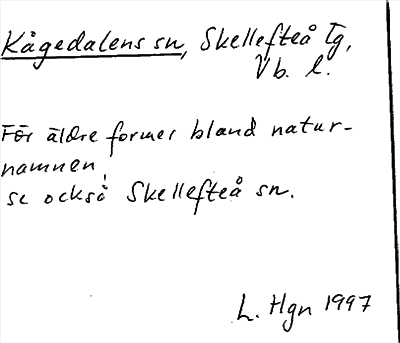 Kågedalens sn, Skellefteå Tg,
Vb. l.
För äldre former bland natur-
namnen,
se också Skellefteå sn.
L. Hgn 1997